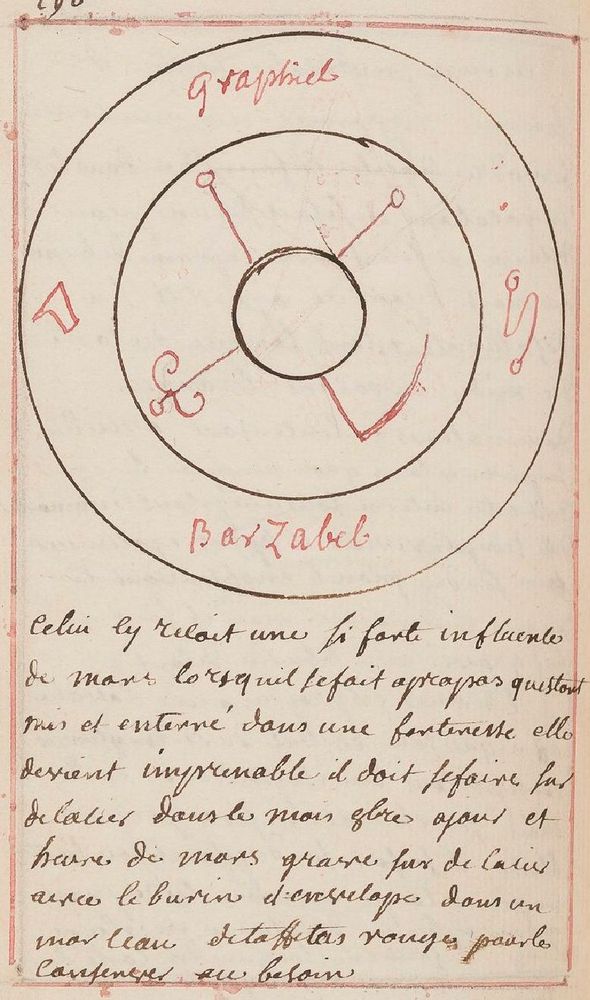 290
Graphiel
BarZabel
Celui cy resoit une si forte influente
de mars lorsquil sefait apropos questant
mis et enterré dans une forteresse elle
devient imprenable il doit sefaire sur
delacier dansle mois 9bre ajour et
heure de mars grave sur delacier
avec leburin et envelopé dans un
morceau detaffetas rouge pourle
conserver au besoin